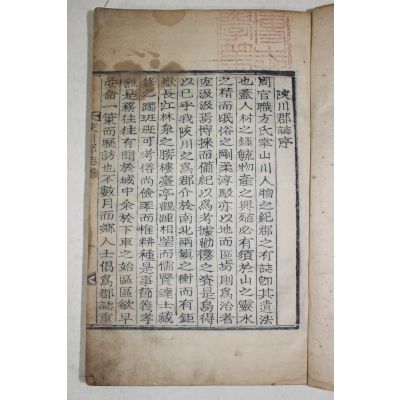 陜川郡誌序
周官職方氏掌山川人物之紀郡之有誌卽其遺法
也盖人材之鍾毓物産之興殖必有須於山之靈水
之精而民俗之剛柔淳駁亦以地而區焉則爲治者
宜汲汲焉博採而備紀以爲考據勸懲之資是烏得
以已乎我陜川之爲郡介於南北兩鎭之衝而有鉅
嶽長江林泉之勝樓臺亭觀踵相望而儒賢達士藏
修之躅班班可考俗尚儉素而惟耕種是事節義孝
烈是務往往有聞於域中余於下車之始區區欲早
命一策而歷訪也不數月而鄉人士倡爲郡誌重
陜川郡誌